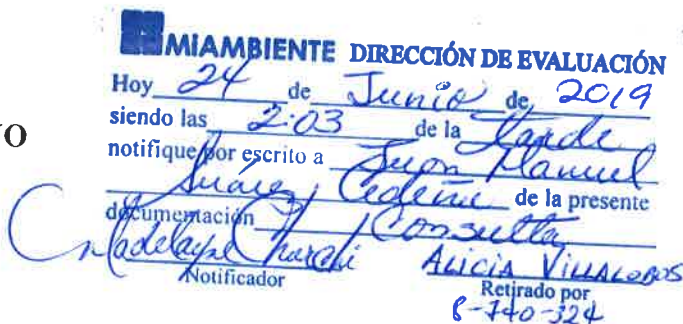 MIAMBIENTE DIRECCIÓN DE EVALUACIÓN
Hoy 24 de Junio de 2019
siendo las 2:03 de la tarde
VO
notifique por escrito a Juan Manuel
Suárez Cedeño de la presente
documentación Consulta
Notificador
ALICIA VILLALOBOS
Retirado por
8-740-324